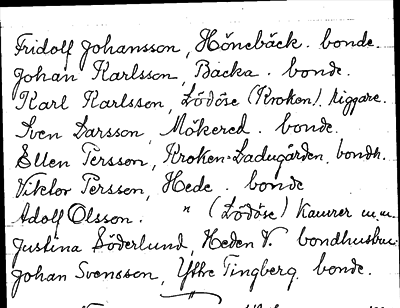 Fridolf Johansson, Hönebäck. bonde.
Johan Karlsson, Backa. bonde.
Karl Karlsson, Lödöse (Kroken). Riggare.
Sven Larsson, Mökered. bonde.
Ellen Persson, Kroken-Ladugården, bondh.
Viktor Persson, Hede. bonde
Adolf Olsson. " (Lödöse) Kamrer m.m.
Justina Söderlund, Heden V. bondhustru.
Johan Svensson, Yttre Tingberg. bonde.